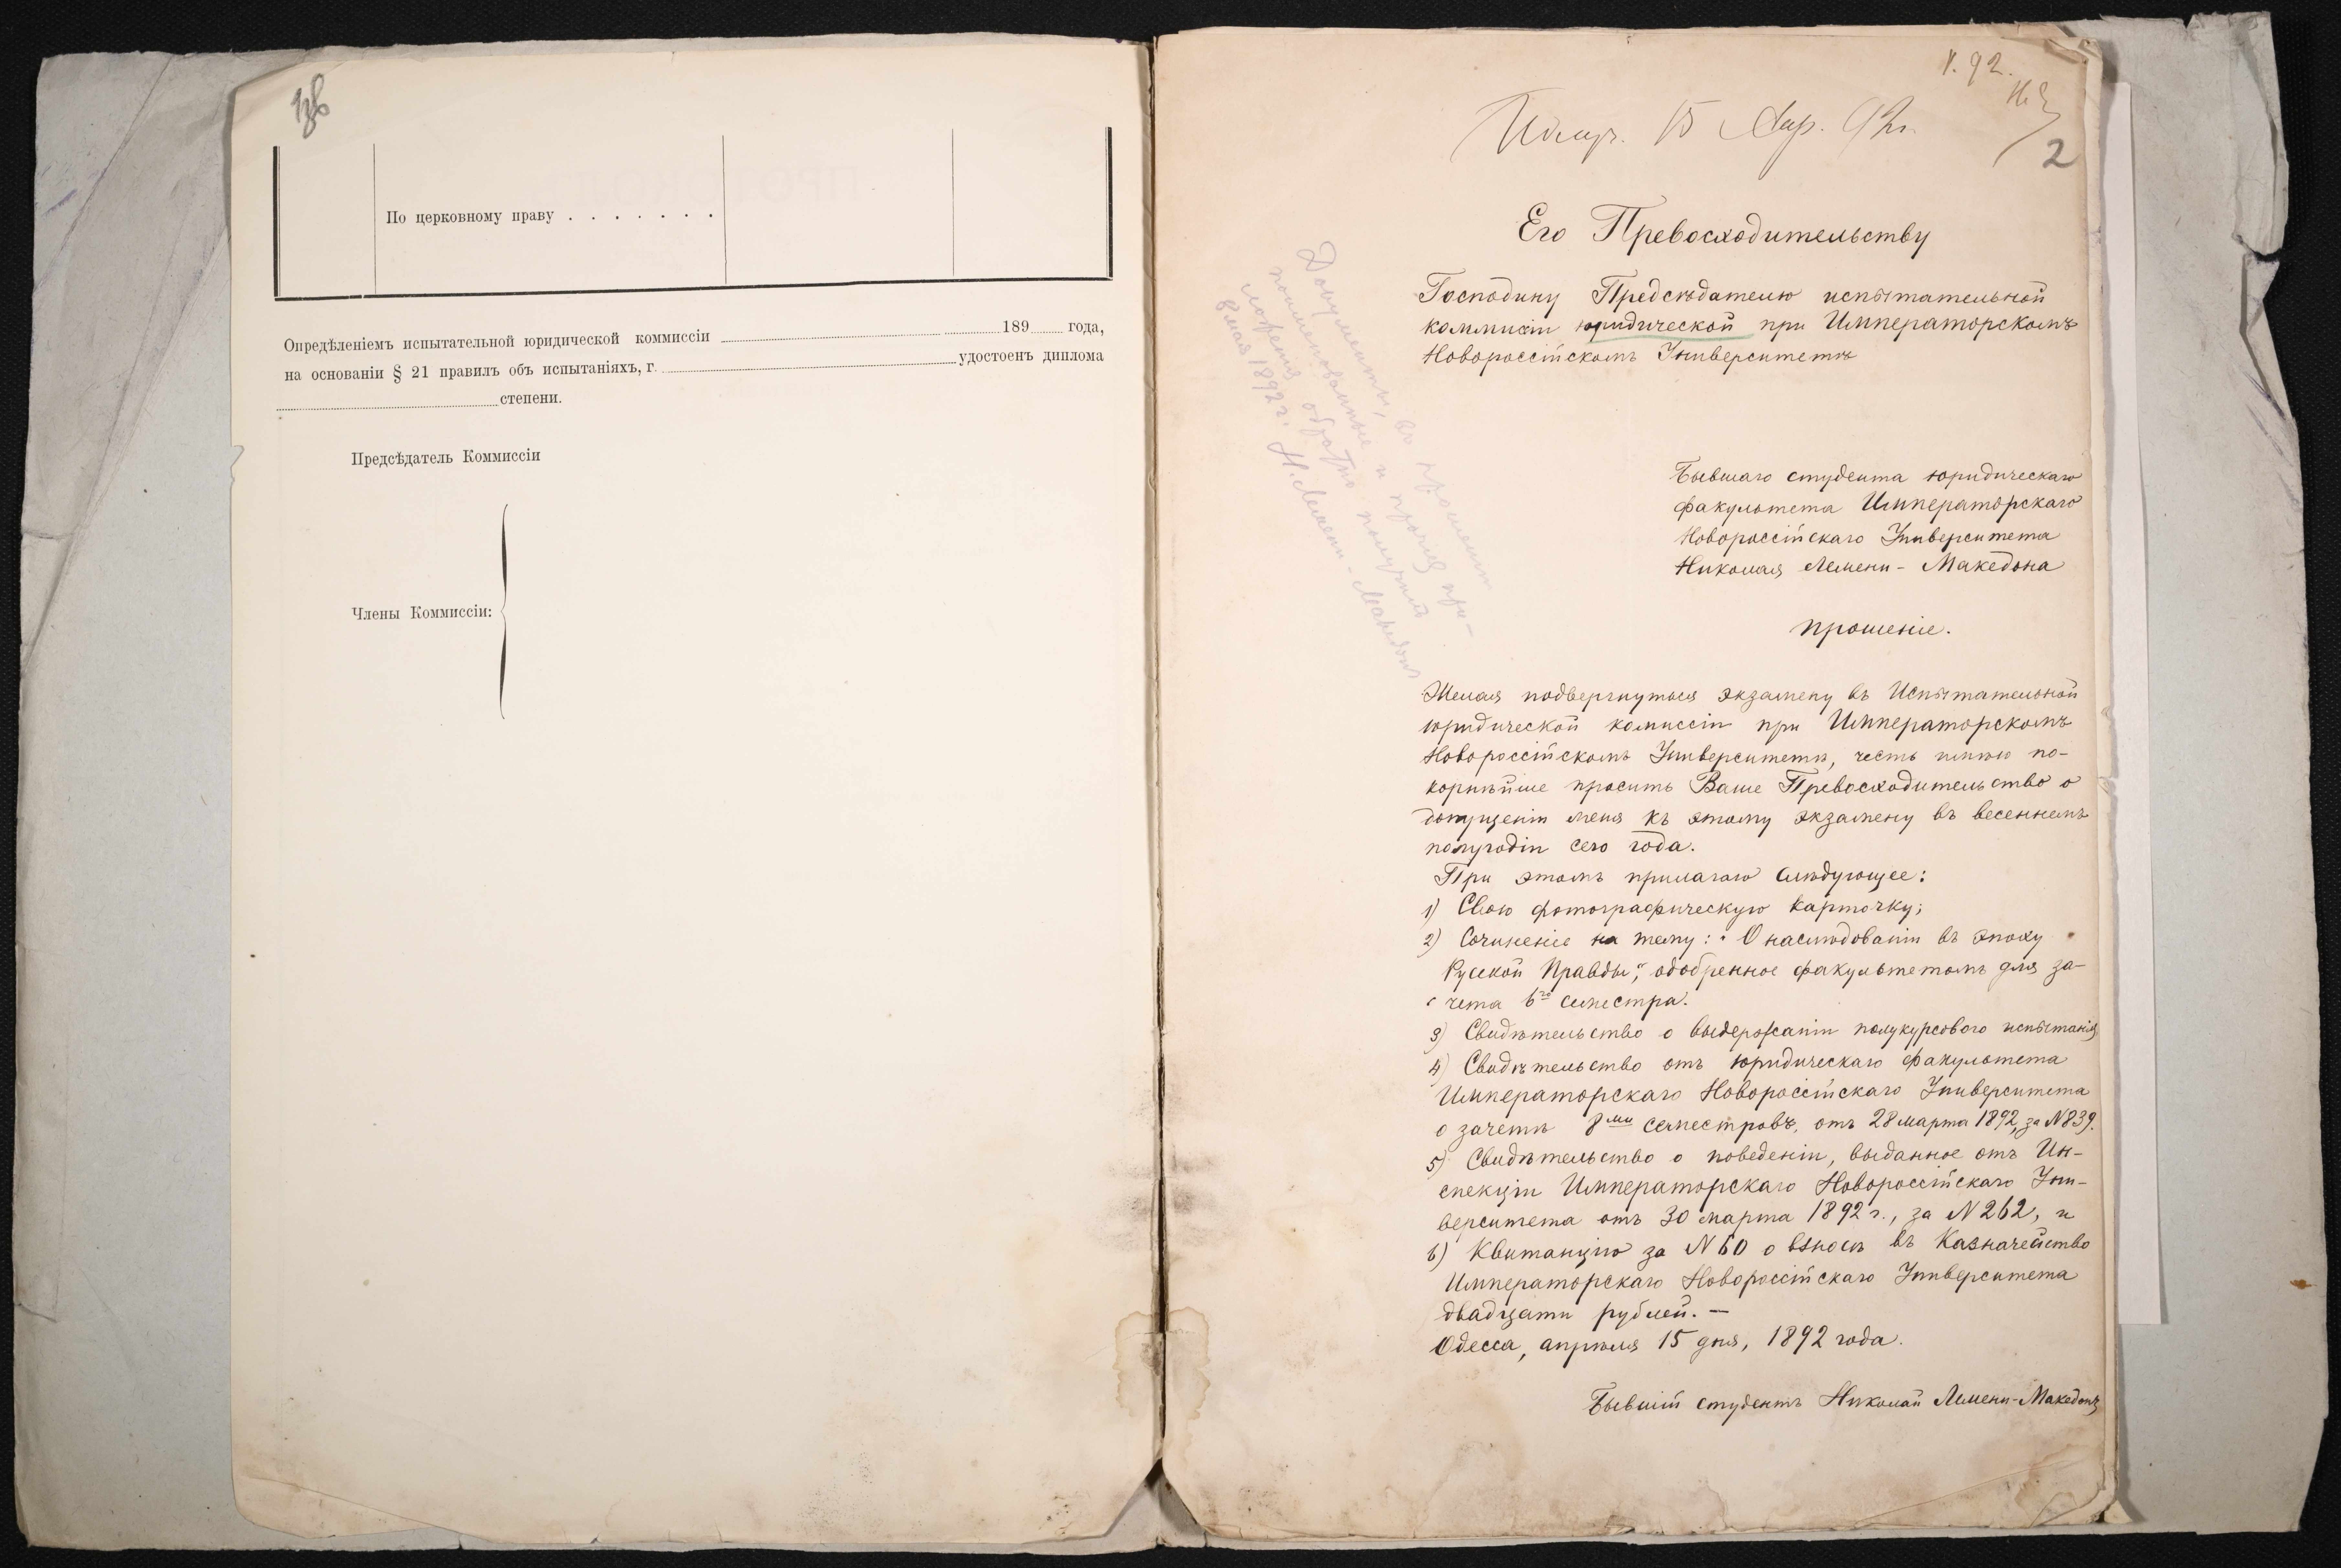 1об
По церковному праву . . . . . . .
Опредѣленіемъ испытательной юридической коммиссіи 189 года,
на основаніи § 21 правилъ объ испытаніяхъ, г. удостоенъ диплома
степени.
Предсѣдатель Коммиссіи
Члены Коммиссіи:
15 Апр. 92г.
2
Его Превосходительству
Господину Предсѣдателю испытательной
коммисіи юридической при Императорскомъ
Новороссійскомъ Университетѣ
Документы, въ прошеніи
поименованные и прочія при-
ложенія обратно получилъ
8 мая 1892 г. Н. Лемени-Македонъ
Бывшаго студента юридическаго
факультета Императорскаго
Новороссійскаго Университета
Николая Лемени-Македона
прошеніе.
Желая подвергнуться экзамену въ Испытательной
юридической комиссіи при Императорскомъ
Новороссійскомъ Университетѣ, честь имѣю по-
корнѣйше просить Ваше Превосходительство о
допущеніи меня къ этому экзамену въ весеннемъ
полугодіи сего года.
При этомъ прилагаю слѣдующее:
1) Свою фотографическую карточку;
2) Сочиненіе на тему: „О наслѣдованіи въ эпоху
Русской Правды“, одобренное факультетомъ для за-
чета 6го семестра.
3) Свидѣтельство о выдержаніи полукурсового испытанія
4) Свидѣтельство отъ юридическаго факультета
Императорскаго Новороссійскаго Университета
о зачетѣ 8ми семестровъ, отъ 28 марта 1892, за N 839.
5) Свидѣтельство о поведеніи, выданное отъ Ин-
спекціи Императорскаго Новороссійскаго Уни-
верситета отъ 30 марта 1892 г., за N 262, и
6) Квитанцію за N 60 о взносѣ въ Казначейство
Императорскаго Новороссійскаго Университета
двадцати рублей. —
Одесса, апрѣля 15 дня, 1892 года.
Бывшій студентъ Николай Лемени-Македонъ